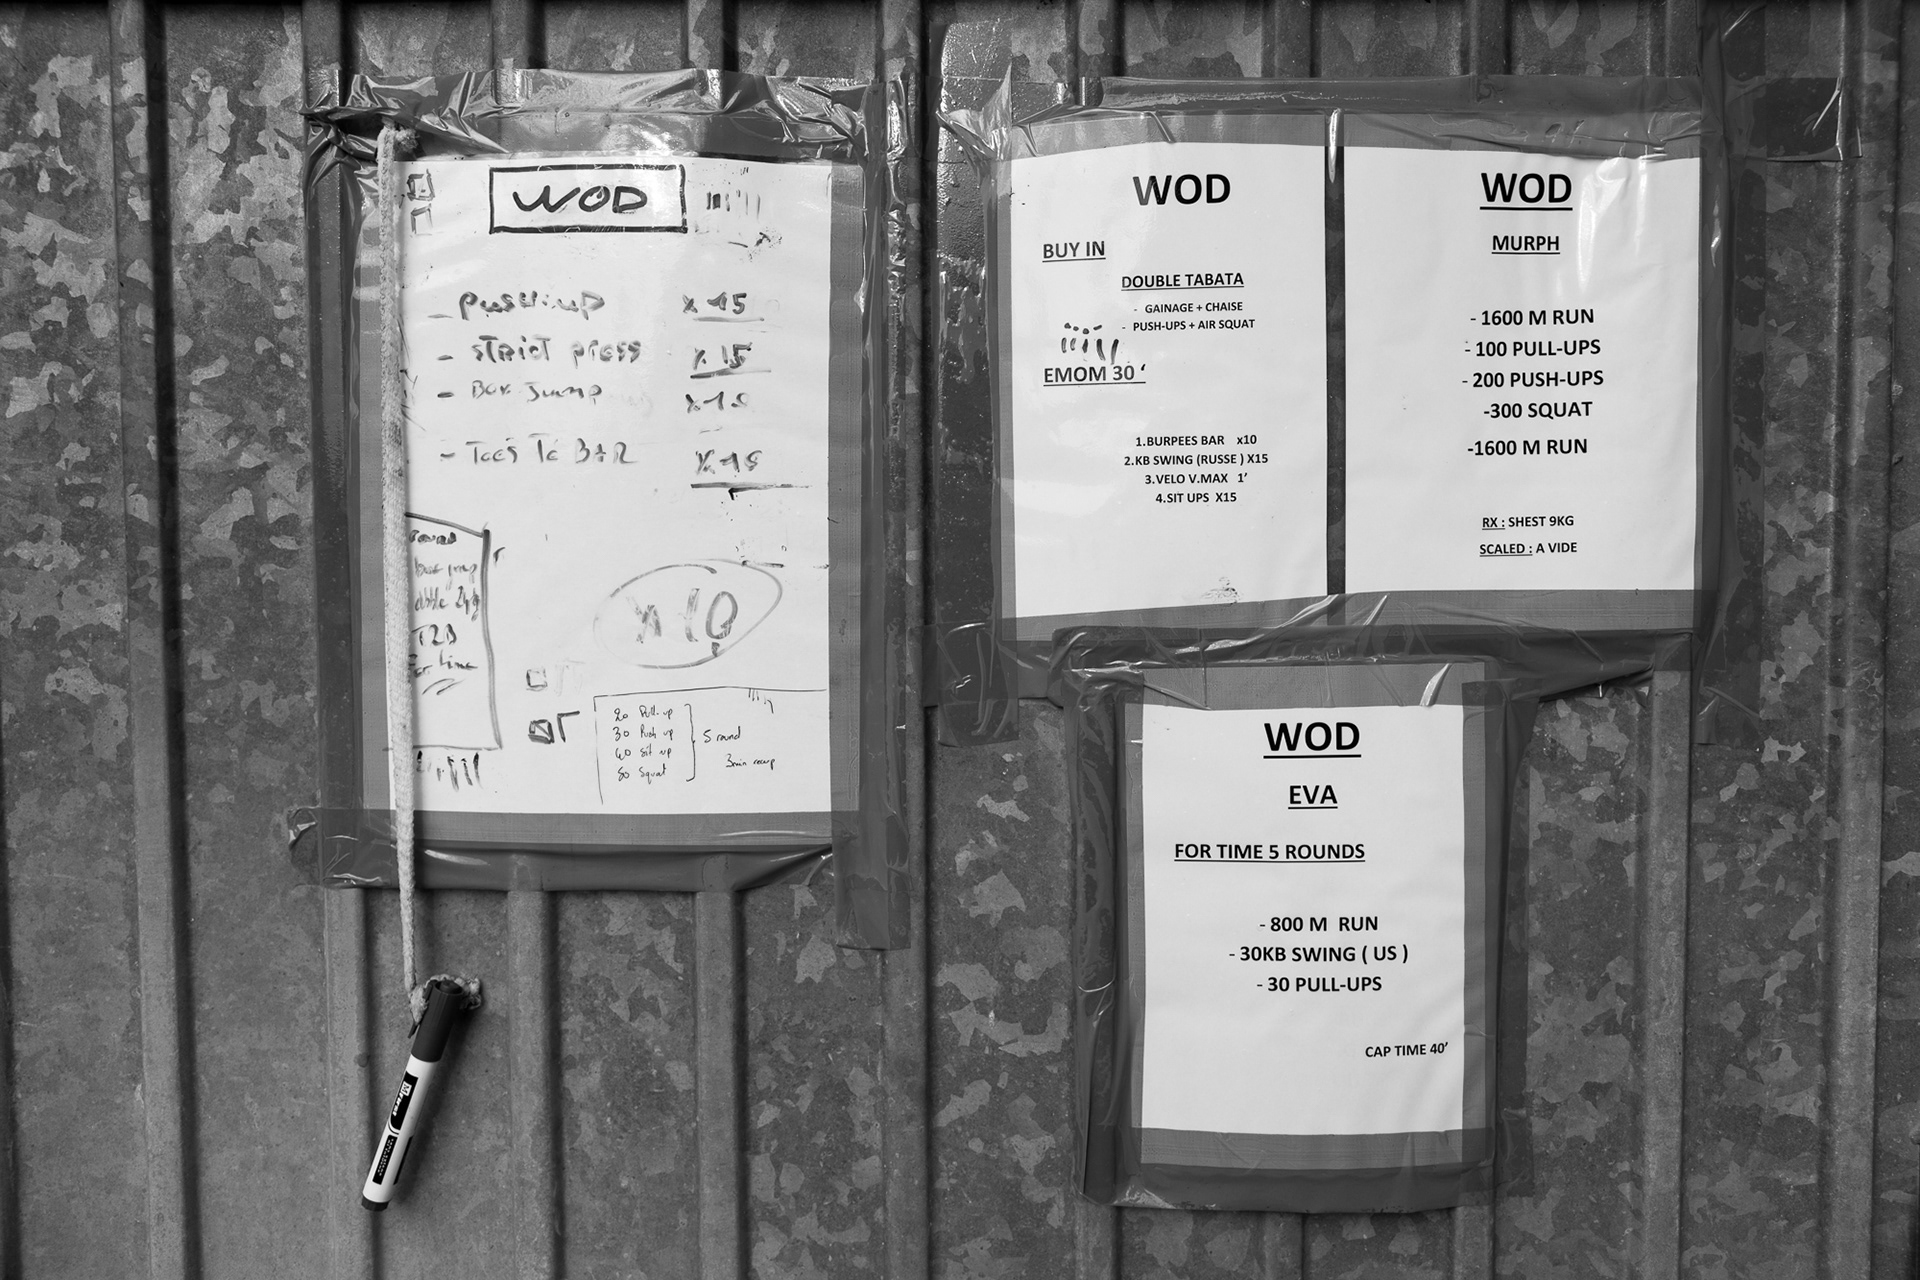 WOD
- Push-up x 15
- Strict press x 15
- Box Jump x 15
- Toes To BAR x 15
box jump
T2B
For time
x10
20 Pull-up
30 Push up
40 Sit up
50 Squat
5 round
3min recup
WOD
BUY IN
DOUBLE TABATA
- GAINAGE + CHAISE
- PUSH-UPS + AIR SQUAT
EMOM 30 ‘
1.BURPEES BAR x10
2.KB SWING (RUSSE ) X15
3.VELO V.MAX 1’
4.SIT UPS X15
WOD
MURPH
- 1600 M RUN
- 100 PULL-UPS
- 200 PUSH-UPS
-300 SQUAT
-1600 M RUN
RX : SHEST 9KG
SCALED : A VIDE
WOD
EVA
FOR TIME 5 ROUNDS
- 800 M RUN
- 30KB SWING ( US )
- 30 PULL-UPS
CAP TIME 40’